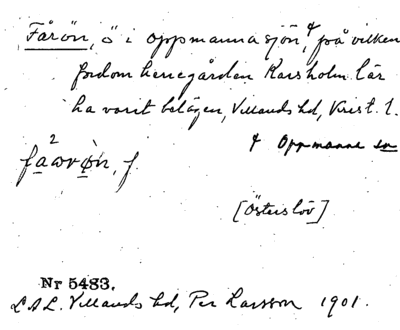 Fårön, ö i Oppmannasjön,⁺ på vilken
fordom herregården Karsholm lär
ha varit belägen, Villands hd, Krist. l.
+ Oppmanna sn
fa²wrø̀n, f.
[Österslöv]
Nr 5483.
LAL. Villands hd, Per Larsson 1901.